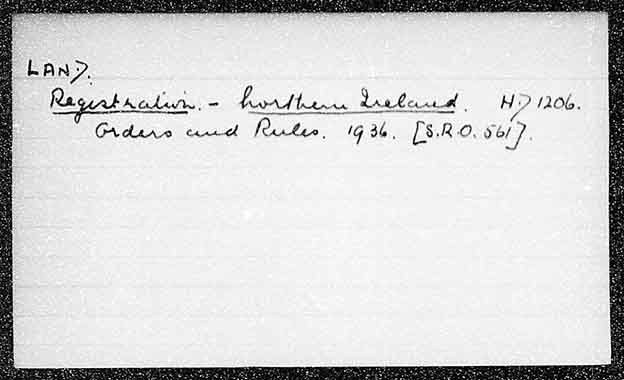 LAND.
Registration. - Northern Ireland. HD 1206.
Orders and Rules. 1936. [S.R.O. 561].